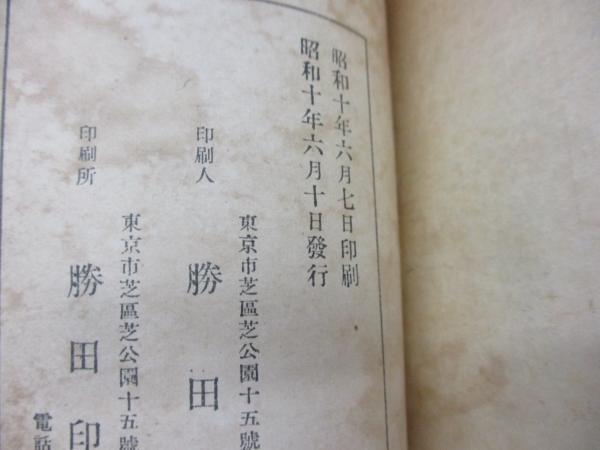 昭和十年六月七日印刷
昭和十年六月十日發行
東京市芝區芝公園十五號
印刷人 勝田
東京市芝區芝公園十五號
印刷所 勝田印
電話